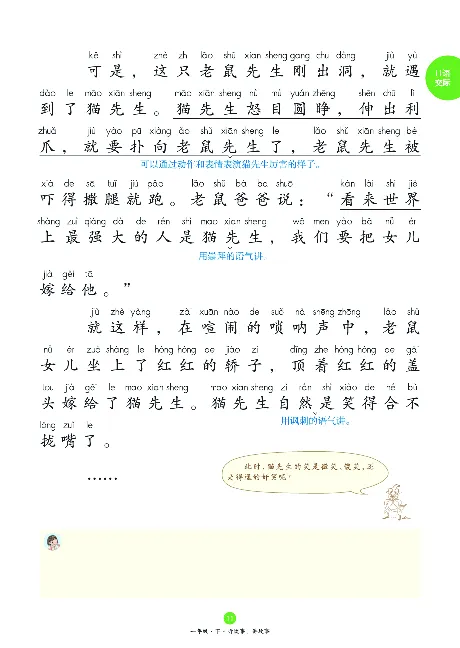 口语
交际
kě shì zhè zhī lǎo shǔ xiān sheng gāng chū dòng jiù yù
可是，这只老鼠先生刚出洞，就遇
dào le māo xiān sheng māo xiān sheng nù mù yuán zhēng shēn chū lì
到了猫先生。猫先生怒目圆睁，伸出利
zhuǎ jiù yào pū xiàng lǎo shǔ xiān sheng le lǎo shǔ xiān sheng bèi
爪，就要扑向老鼠先生了，老鼠先生被
可以通过动作和表情表演猫先生厉害的样子。
xià de sā tuǐ jiù pǎo lǎo shǔ bà ba shuō kàn lái shì jiè
吓得撒腿就跑。老鼠爸爸说：“看来世界
shàng zuì qiáng dà de rén shì māo xiān sheng wǒ men yào bǎ nǚ ér
上最强大的人是猫先生，我们要把女儿
用崇拜的语气讲。
jià gěi tā
嫁给他。”
jiù zhè yàng zài xuān nào de suǒ nà shēng zhōng lǎo shǔ
就这样，在喧闹的唢呐声中，老鼠
nǚ ér zuò shàng le hóng hóng de jiào zi dǐng zhe hóng hóng de gài
女儿坐上了红红的轿子，顶着红红的盖
tou jià gěi le māo xiān sheng māo xiān sheng zì rán shì xiào de hé bù
头嫁给了猫先生。猫先生自然是笑得合不
用讽刺的语气讲。
lǒng zuǐ le
拢嘴了。
……
此时，猫先生的笑是微笑、傻笑，还